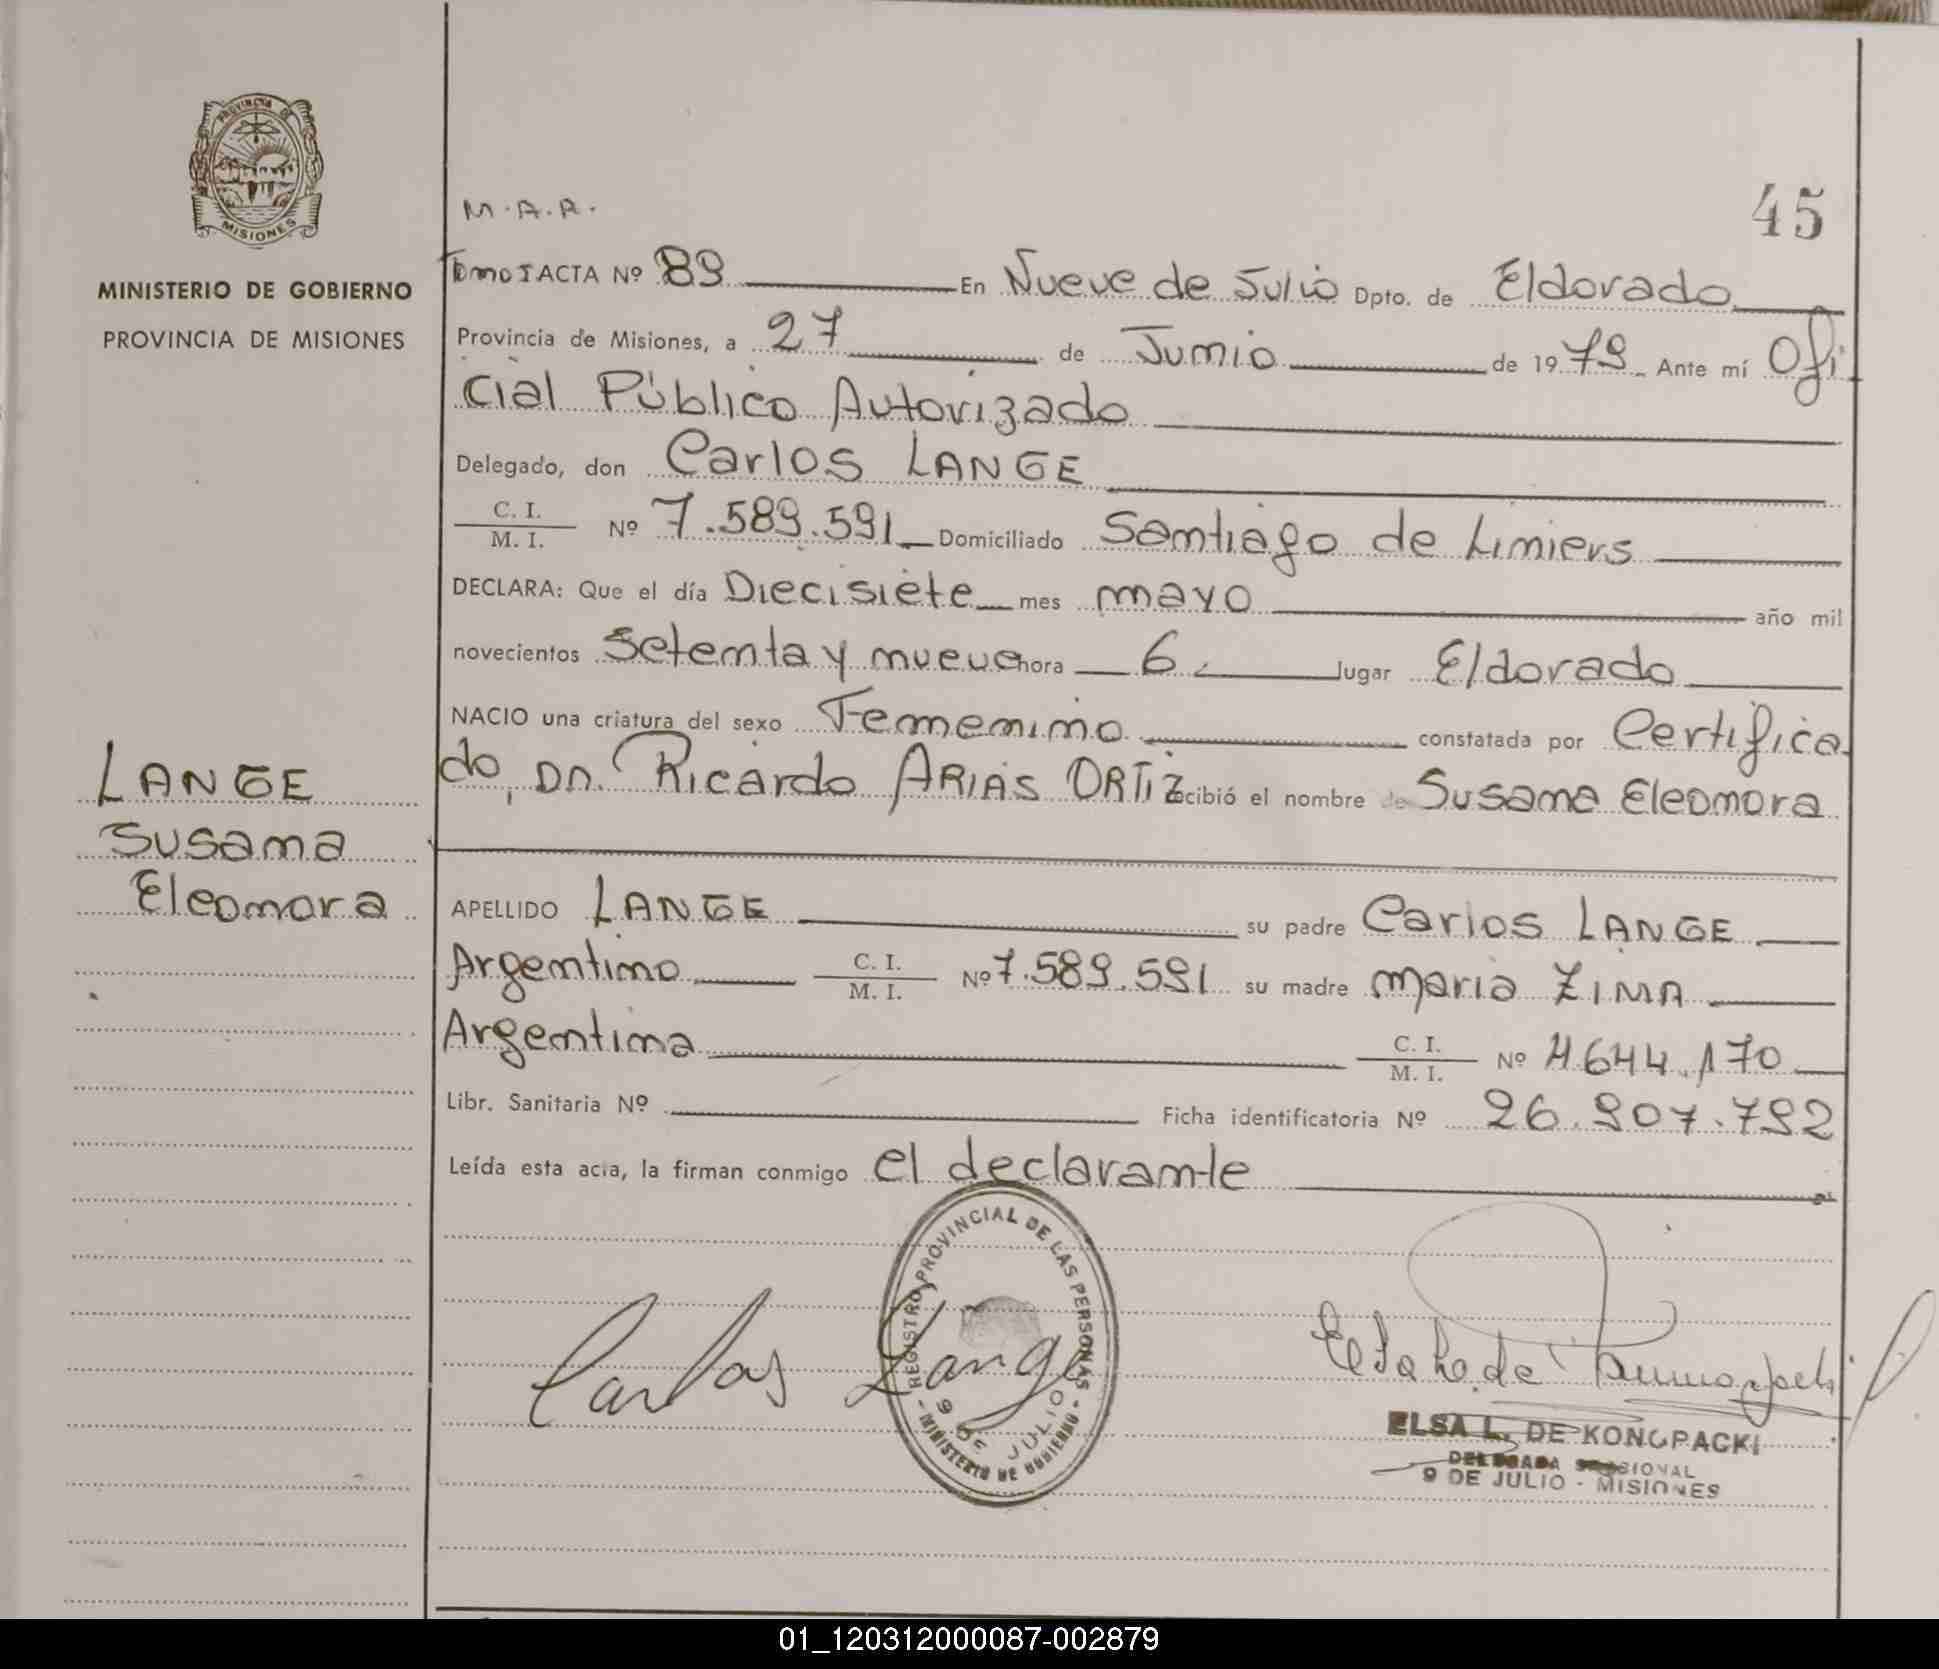 PROVINCIA DE
MISIONES
MINISTERIO DE GOBIERNO
PROVINCIA DE MISIONES
45
M.A.R.
Tomo I ACTA Nº 89 En Nueve de Julio Dpto. de Eldorado
Provincia de Misiones, a 27 de Junio de 1979 Ante mí Ofi
cial Público Autorizado
Delegado, don Carlos LANGE
C. I.
M. I. Nº 7.589.591 Domiciliado Santiago de Liniers
DECLARA: Que el día Diecisiete mes mayo año mil
novecientos Setenta y nueve hora 6 lugar Eldorado
NACIO una criatura del sexo Femenino constatada por Certifica
do, Dn. Ricardo ARIAS ORTIZ recibió el nombre de Susana Eleonora
LANGE
Susana
Eleonora
APELLIDO LANGE su padre Carlos LANGE
Argentino C. I.
M. I. Nº 7.589.591 su madre Maria ZIMA
Argentina C. I.
M. I. Nº 4.644.170
Libr. Sanitaria Nº Ficha identificatoria Nº 26.907.792
Leída esta acta, la firman conmigo el declarante
REGISTRO PROVINCIAL DE LAS PERSONAS
9 DE JULIO
- MINISTERIO DE GOBIERNO -
Carlos Lange
ELSA L. DE KONOPACKI
DELEGADA SECCIONAL
9 DE JULIO - MISIONES
01_120312000087-002879